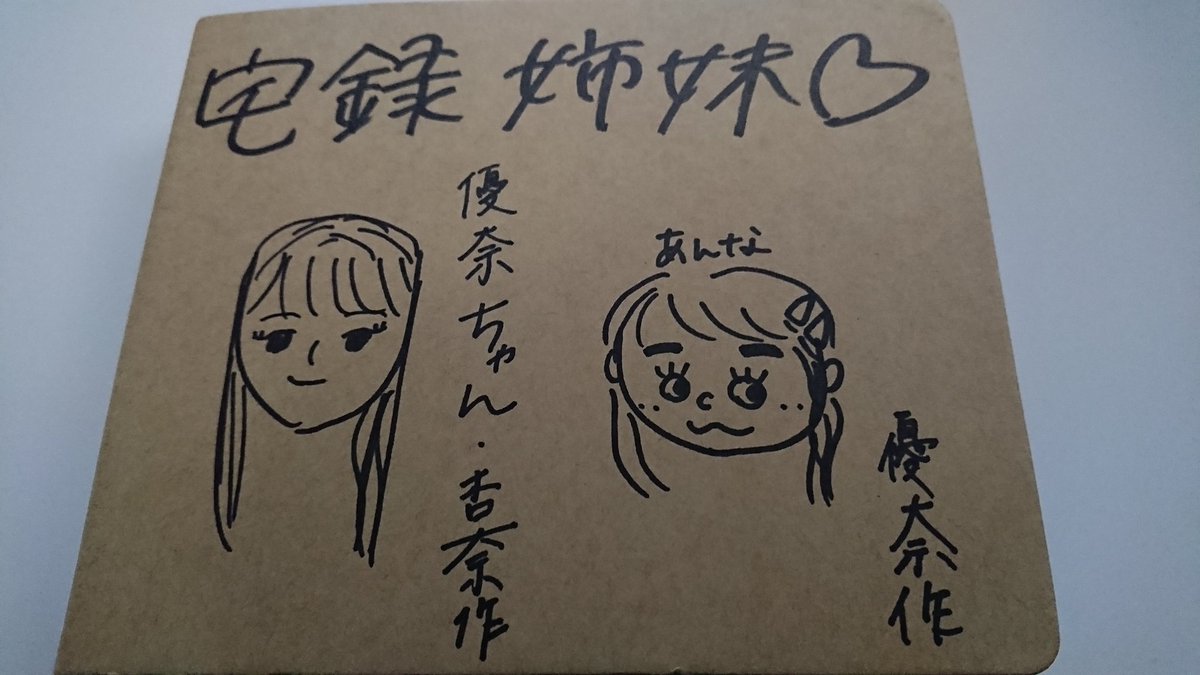 宅録姉妹♡
優奈ちゃん・杏奈作
あんな
優奈作